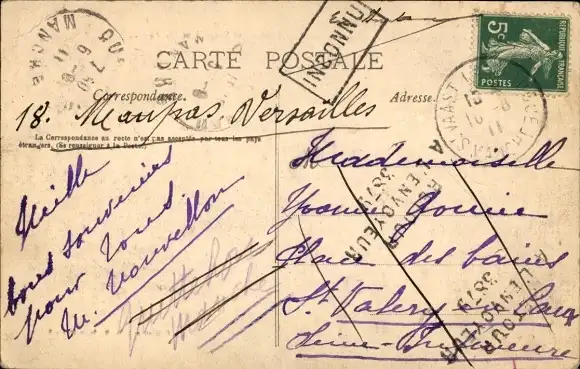 INCONNU
CARTE POSTALE
Correspondance.
Adresse.
18. Maupas, Versailles
La Correspondance au recto n'est pas acceptée par tous les pays
étrangers. (Se renseigner à la Poste).
Mille
bons souvenirs
pour tous
M.
Mademoiselle
Yvonne
Place des bains
St Valery en Caux
Seine Inférieure
RETOUR
A L'ENVOYEUR
387-9
RETOUR
A L'ENVOYEUR
387-9
MANCHE
5c
REPUBLIQUE FRANÇAISE
POSTES